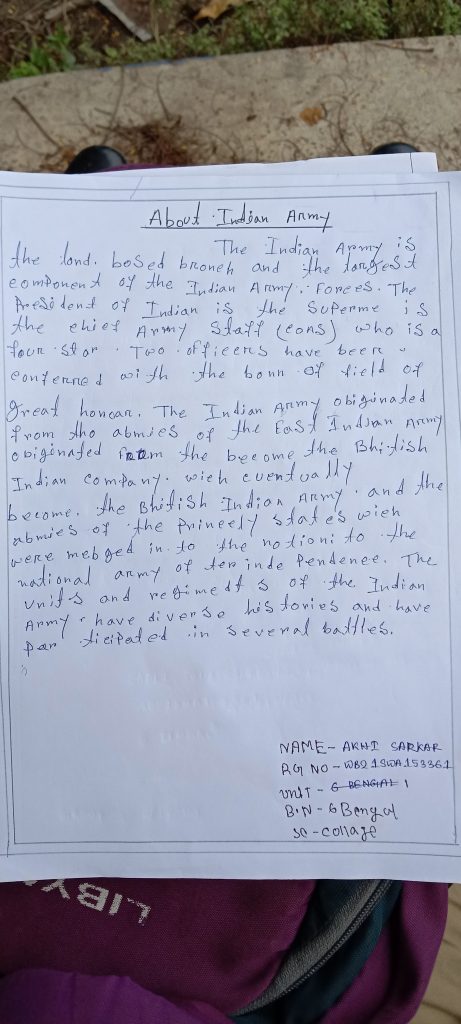 About Indian Army
The Indian Army is
the lond. bosed broneh and the largest
eomponent of the Indian Army. Forees. The
President of Indian is the Superme is
the ehief Army Staff (eons) who is a
four star. Two officers have been
conferred with the bonn of field of
great honcar. The Indian Army obiginated
from tho abmies of the East Indian Army
obiginated from the beeome the Bhitish
Indian company. wieh eventually
become. the Bhitish Indian Army. and the
abmies of the Prineely states wieh
were mebged in to the notioni to the
national army of ter inde Pendenee. The
units and regimedt s of the Indian
Army have diverse histories and have
Par ticipated in several battles.
NAME - AKHI SARKAR
RG NO - WB21SWA153361
UNIT - 6 BENGAL 1
B.N - 6 Bengal
sc - collage
LIBY